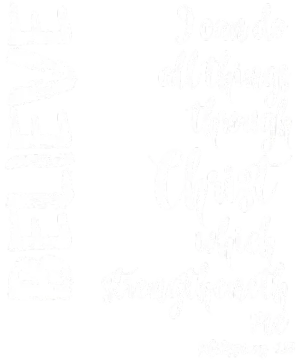 BELIEVE
I can do
all things
through
Christ
which
strengtheneth
me